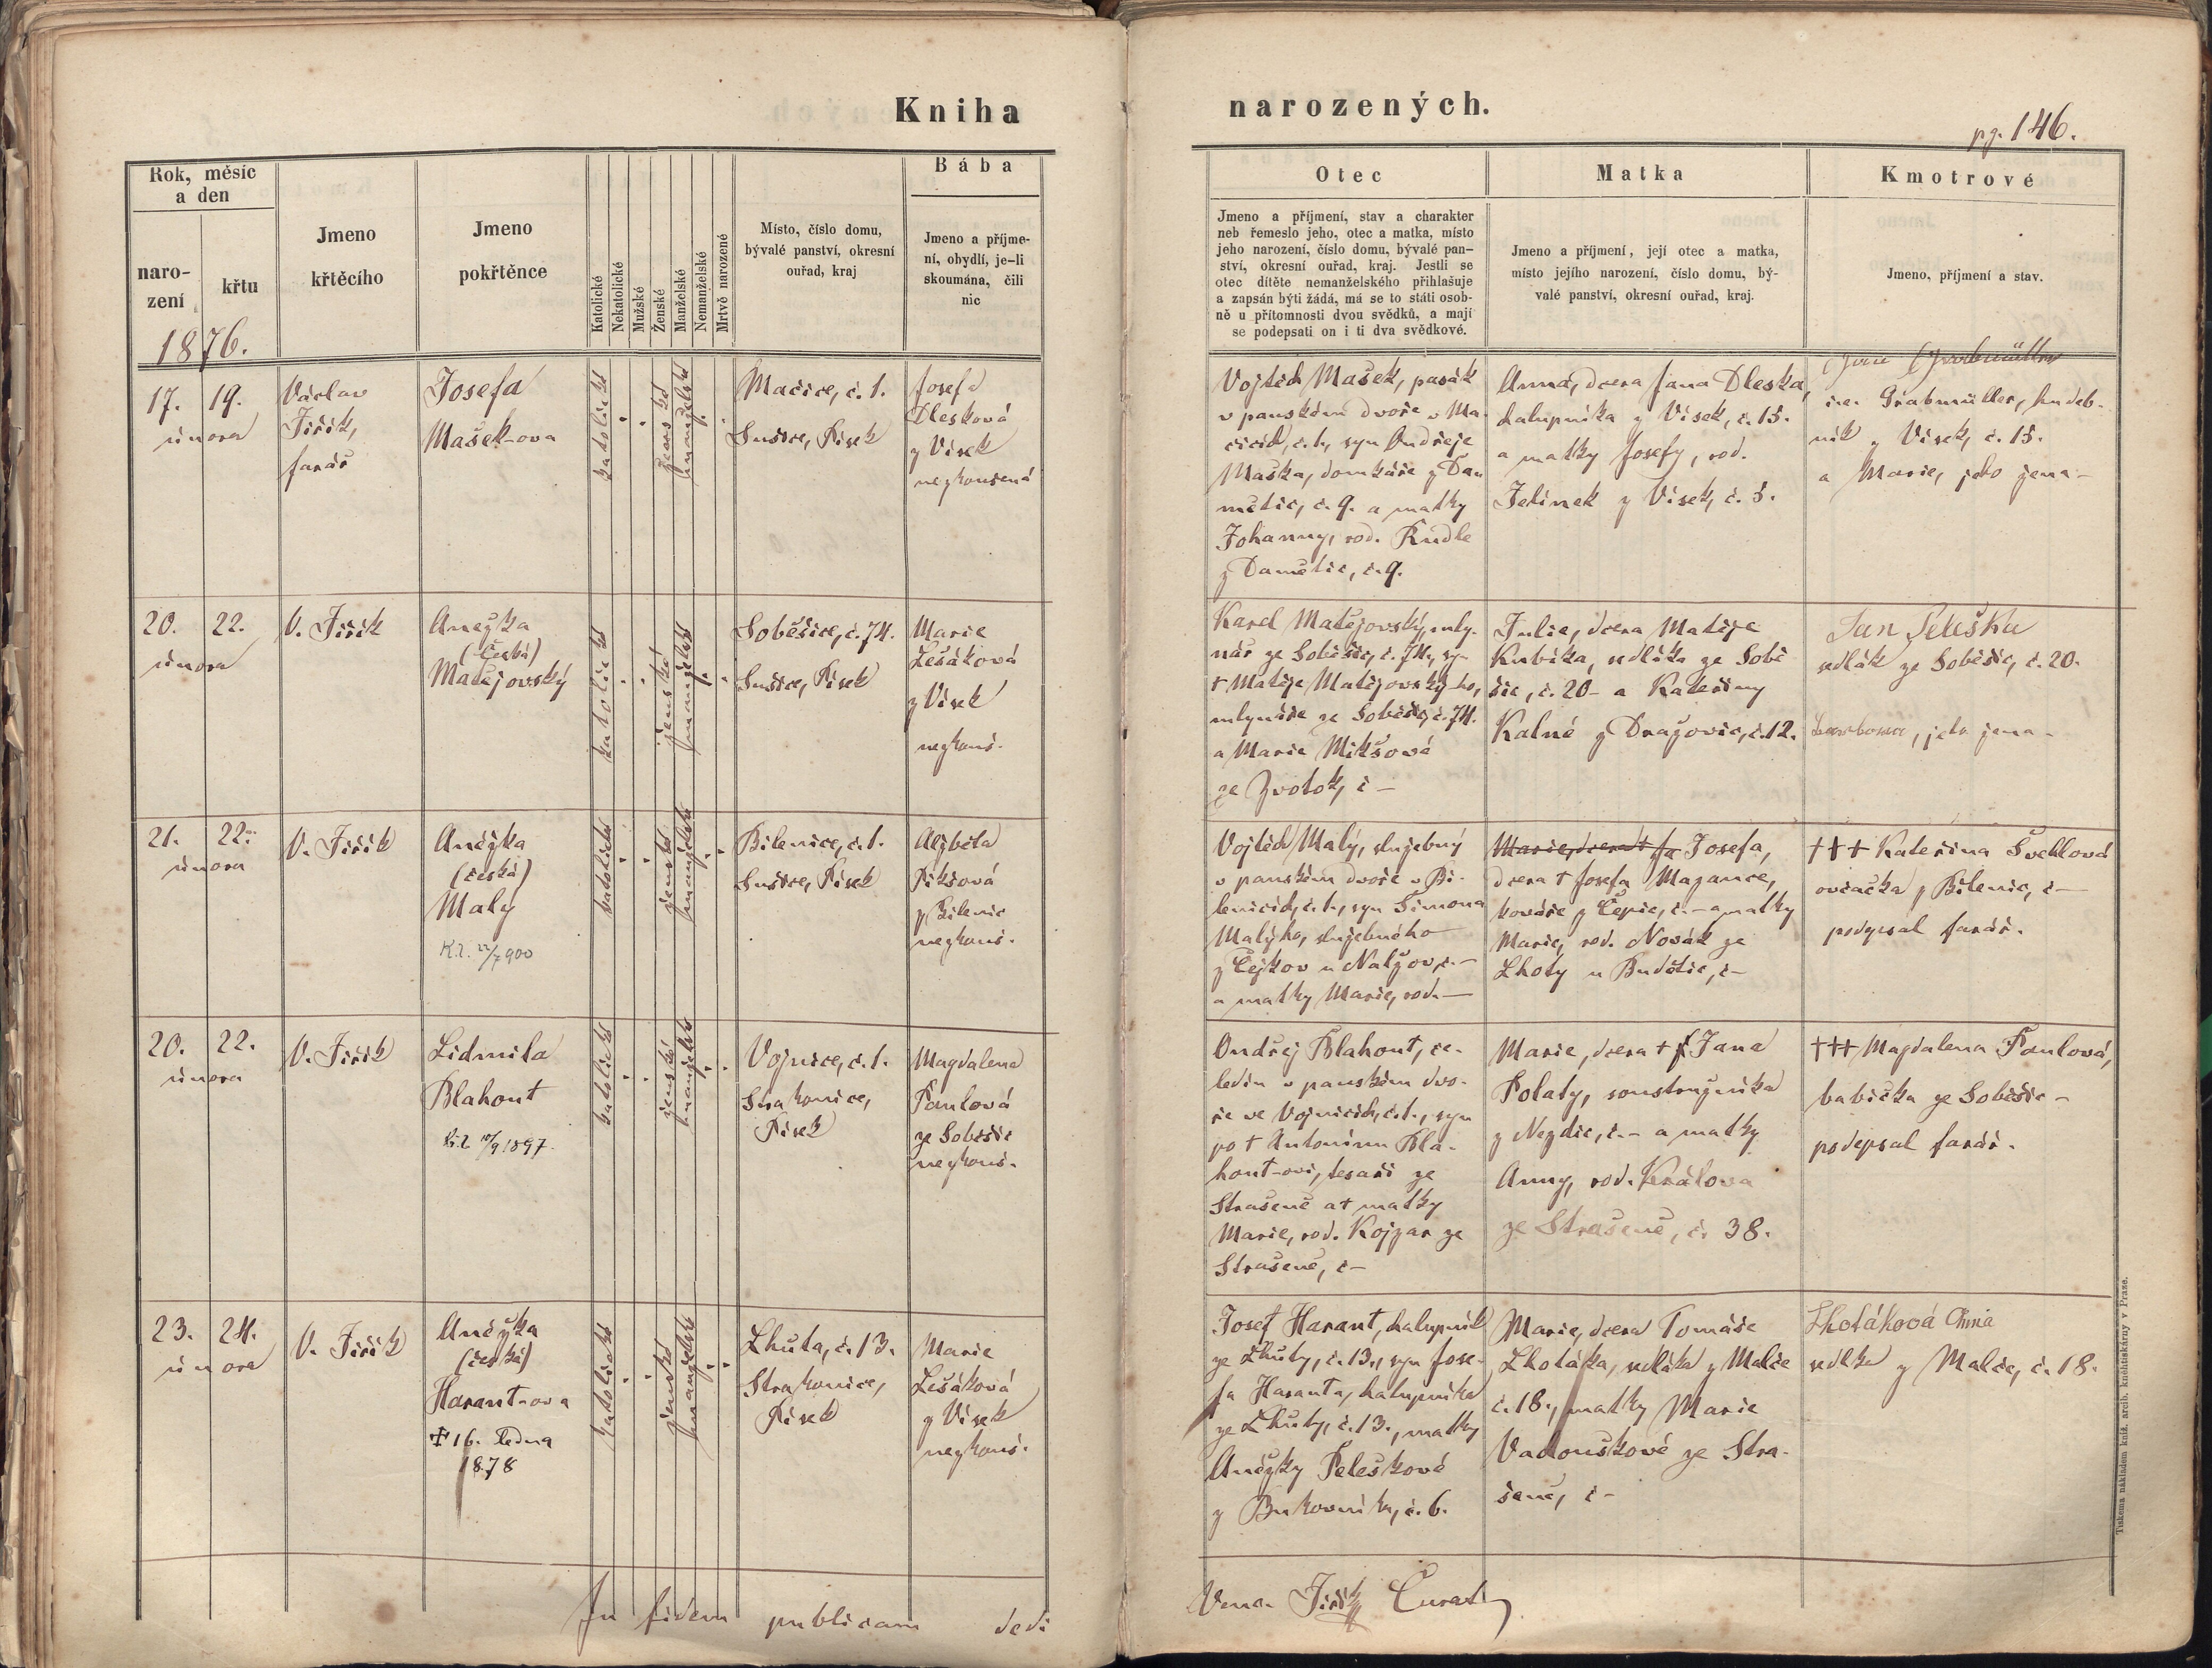 Kniha
narozených.
pg. 146.
Rok, měsíc
a den
naro-
zení
křtu
1876.
Jmeno
křtěcího
Jmeno
pokřtěnce
Katolické
Nekatolické
Mužské
Ženské
Manželské
Nemanželské
Mrtvě narozené
Místo, číslo domu,
bývalé panství, okresní
ouřad, kraj
Bába
Jmeno a příjme-
ní, obydlí, je-li
skoumána, čili
nic
Otec
Jmeno a příjmení, stav a charakter
neb řemeslo jeho, otec a matka, místo
jeho narození, číslo domu, bývalé pan-
ství, okresní ouřad, kraj. Jestli se
otec dítěte nemanželského přihlašuje
a zapsán býti žádá, má se to státi osob-
ně u přítomnosti dvou svědků, a mají
se podepsati on i ti dva svědkové.
Matka
Jmeno a příjmení, její otec a matka,
místo jejího narození, číslo domu, bý-
valé panství, okresní ouřad, kraj.
Kmotrové
Jmeno, příjmení a stav.
17. 19.
února
Václav
Jiřík,
farář
Josefa
Mašek-ova
katolické
ženské
manželské
Mačice, č. 1.
Sušice, Písek
Josefa
Dlesková
z Vísek
nezkoušená
Vojtěch Mašek, pasák
v panském dvoře v Ma-
čicích, č. 1., syn Ondřeje
Maška, domkáře z Dam
nětic, č. 9. a matky
Johanny, rod. Kudle
z Damětic, č. 9.
Anna, dcera Jana Dleska,
chalupníka z Vísek, č. 15.
a matky Josefy, rod.
Jelínek z Vísek, č. 5.
Jan Grabmüller
Grabmüller, hudeb-
ník z Vísek, č. 15.
a Marie, jeho žena-
20. 22.
února
V. Jiřík
Anežka
(Česká)
Matějovský
katolické
ženské
manželské
Soběšice, č. 74.
Sušice, Písek
Marie
Lešáková
z Vísek
nezkouš.
Karel Matějovský, mly-
nář ze Soběšic, č. 74., sy-
† Matěje Matějovský-ho,
mlynáře ze Soběšic, č. 74.
a Marie Mikšové
ze Zvotok, č -
Julie, dcera Matěje
Kubíka, sedláka ze Sobě
šic, č. 20- a Kateřiny
Kalné z Dražovic, č. 12.
Jan Peleška
sedlák ze Soběšic, č. 20.
Barbora, jeho žena-
21. 22.
února
V. Jiřík
Anežka
(česká)
Malý
K.l. 22/7 900
katolické
ženské
manželské
Bílenice, č. 1.
Sušice, Písek
Alžběta
Pikšová
z Bílenic
nezkouš.
Vojtěch Malý, služebný
v panském dvoře v Bí-
lenicích, č. 1., syn Šimona
Malýho, služebného
z Čejkov u Nalžov, č. -
a matky Marie, rod. -
Marie, dcera † Ja Josefa,
dcera † Josefa Mazance,
kováře z Čepic, č. - a matky
Marie, rod. Novák ze
Lhoty u Budětic, č -
††† Kateřina Švehlová
ovčačka z Bílenic, č -
podepsal farář.
20. 22.
února
V. Jiřík
Lidmila
Blahout
K.l. 10/9 1897.
katolické
ženské
manželské
Vojnice, č. 1.
Strakonice,
Písek
Magdalena
Paulová
ze Soběšic
nezkouš.
Ondřej Blahout, če-
ledín v panském dvo-
ře ve Vojnicích, č. 1., syn
po † Antonínu Bla-
hout-ovi, tesaři ze
Strašeně a † matky
Marie, rod. Kojzar ze
Strašeně, č -
Marie, dcera † Jana
Polaty, soustružníka
z Nezdic, č. - a matky
Anny, rod. Králova
ze Strašeně, č. 38.
††† Magdalena Paulová,
babička ze Soběšic -
podepsal farář.
23. 24.
února
V. Jiřík
Anežka
(česká)
Harant-ova
† 16. ledna
1878
katolické
ženské
manželské
Lhůta, č. 13.
Strakonice,
Písek
Marie
Lešáková
z Vísek
nezkouš.
Josef Harant, chalupník
ze Lhůty, č. 13., syn Jose-
fa Haranta, chalupníka
ze Lhůty, č. 13., matky
Anežky Peleškové
z Bukovníka, č. 6.
Marie, dcera Tomáše
Lhotáka, sedláka z Malče
č. 18., matky Marie
Vadouškové ze Stra-
šeně, č -
Lhotáková Anna
sedlka z Malče, č. 18.
In fidem publicam dedi
Venc. Jiřík Curat
Tiskem a nákladem kníž. arcib. knihtiskárny v Praze.